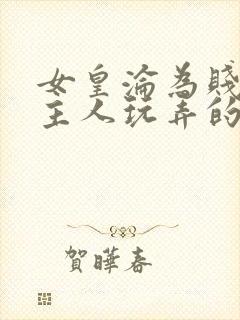 女皇淪為賤
主人玩弄的
賀曄春